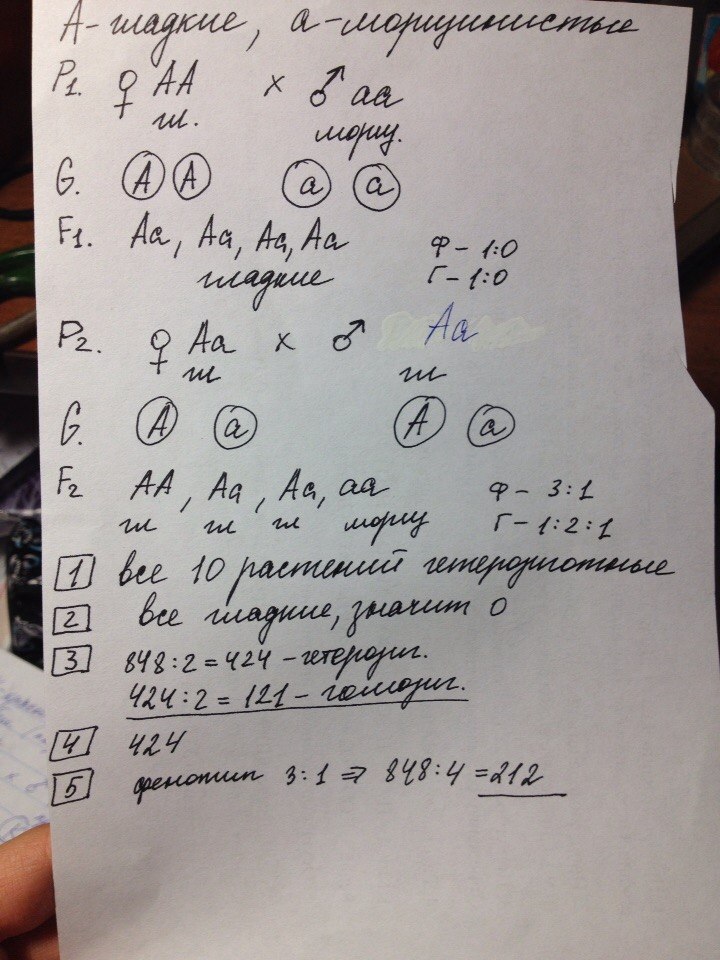 А-гладкие, а-морщинистые
P1. ♀ АА × ♂ аа
гл. морщ.
G. А А а а
F1. Аа, Аа, Аа, Аа Ф - 1:0
гладкие Г - 1:0
P2. ♀ Аа × ♂ Аа
гл гл
G. А а А а
F2 АА, Аа, Аа, аа Ф - 3:1
гл гл гл морщ Г - 1:2:1
1 все 10 растений гетерозиготные
2 все гладкие, значит 0
3 848:2=424 - гетерозиг.
424:2=121 - гомозиг.
4 424
5 фенотип 3:1 => 848:4=212